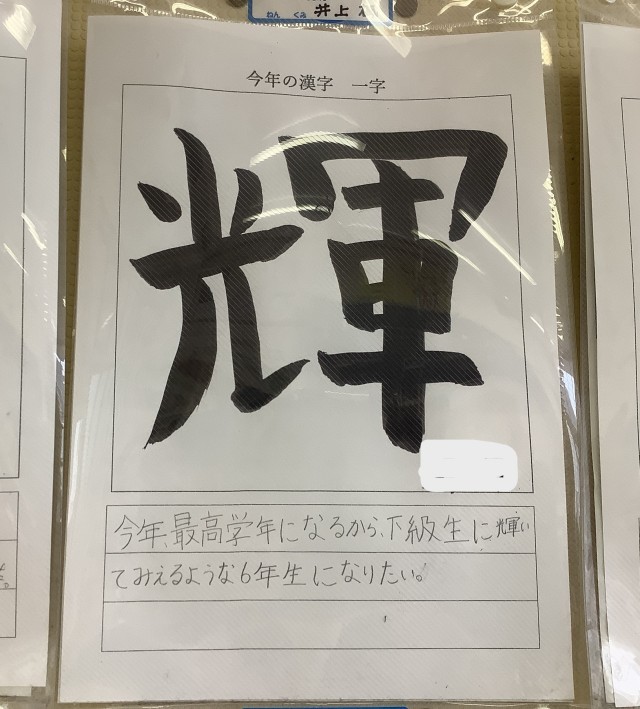 ねん くみ 井上
今年の漢字 一字
輝
今年、最高学年になるから、下級生に輝い
てみえるような6年生になりたい。